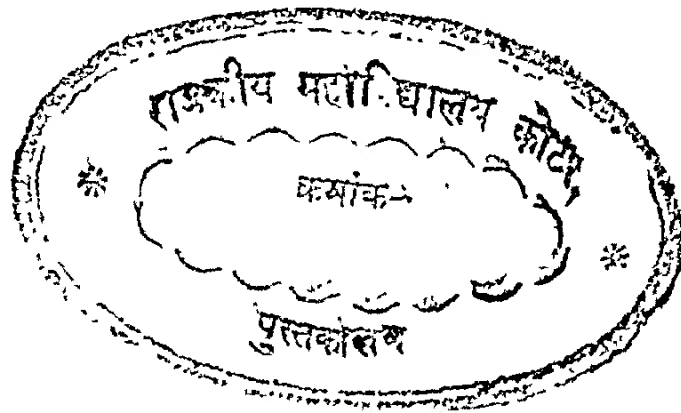 राजकीय महाविद्यालय कोटा
क्रमांक-
पुस्तकालय